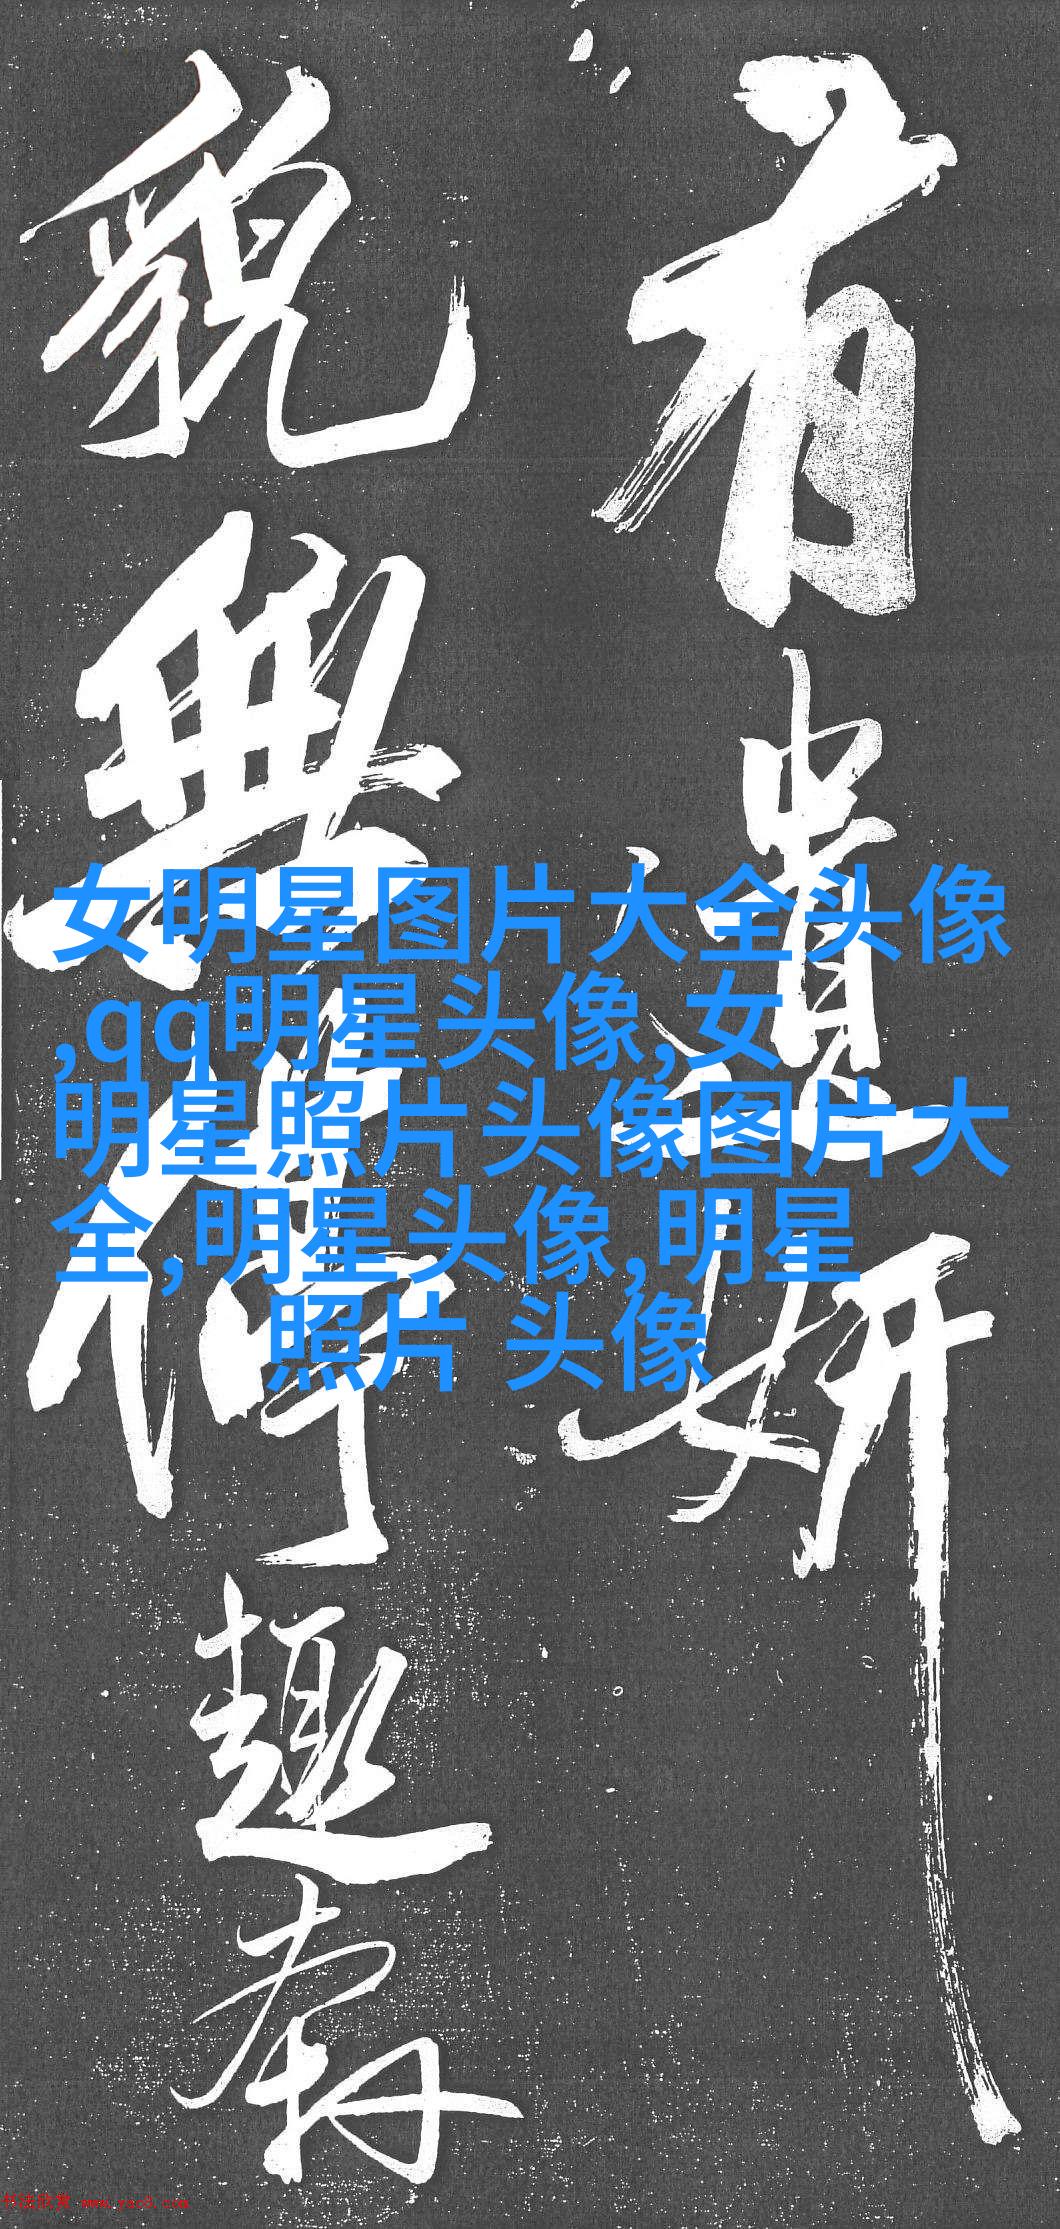 有遺妍
貌無停趣奔
女明星图片大全头像
,qq明星头像,女
明星照片头像图片大
全,明星头像,明星
照片 头像
书法欣赏 www.yac8.com